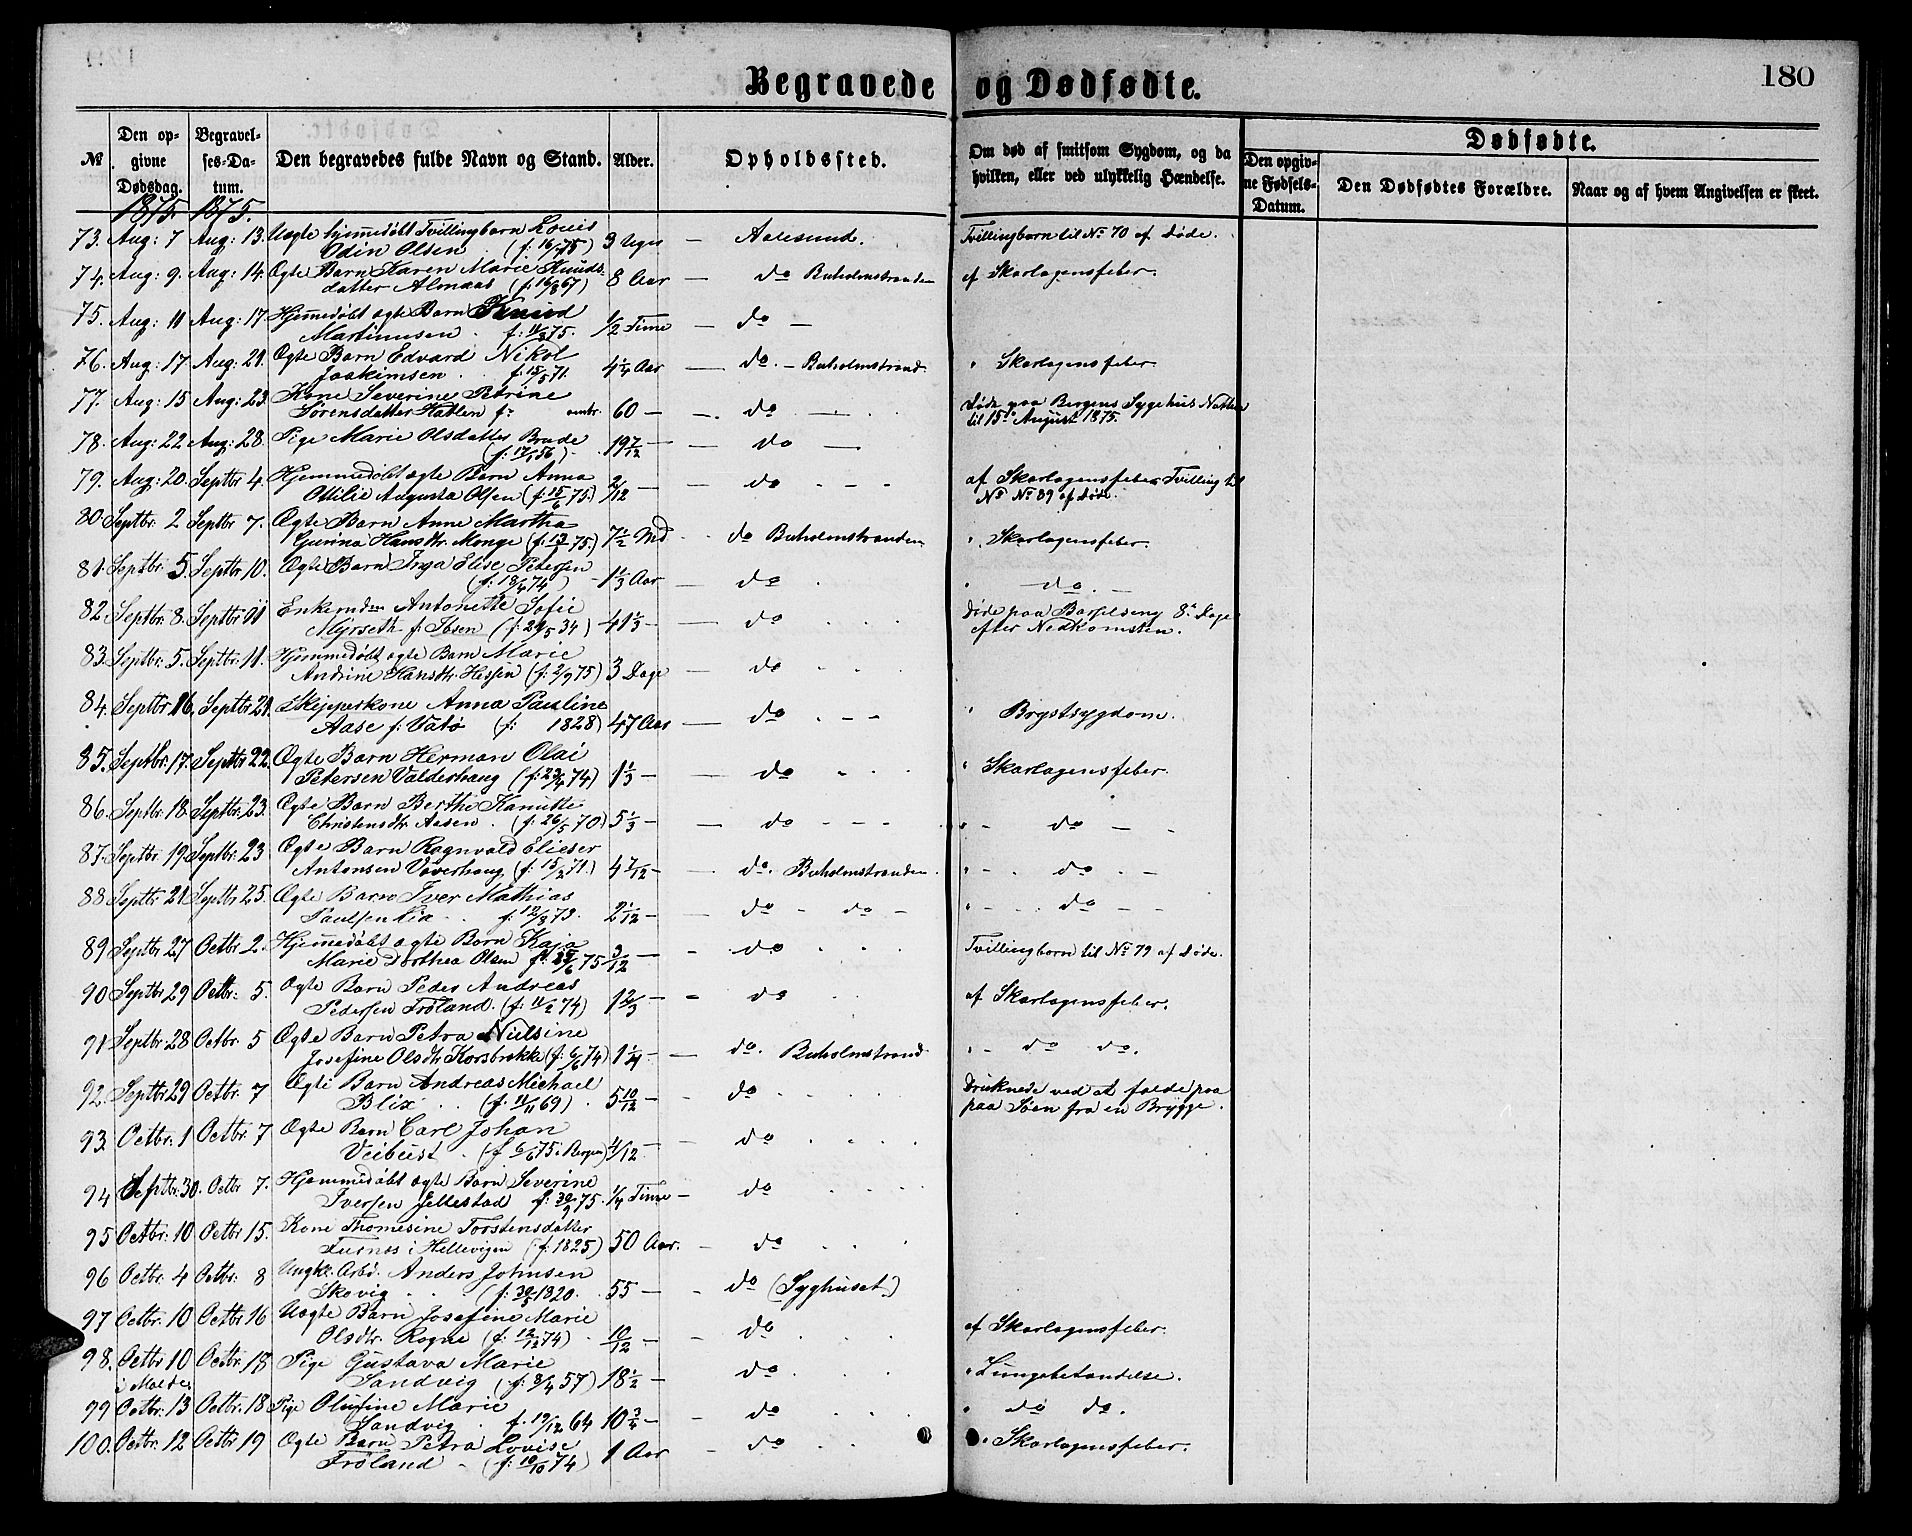 Begravede og Dødfødte.
180
№
Den op-
givne
Dødsdag.
Begravel-
ses-Da-
tum.
Den begravedes fulde Navn og Stand.
Alder.
Opholdssted.
Om død af smitsom Sygdom, og da
hvilken, eller ved ulykkelig Hændelse.
Dødfødte.
Den opgiv-
ne Fødsels-
Datum.
Den Dødfødtes Forældre.
Naar og af hvem Angivelsen er skeet.
1875. 1875.
73. Aug: 7 Aug: 13. Uægte hjemmedøbt Tvillingbarn Louis
Odin Olsen (f: 16/6 75) 3 Uger — Aalesund. Tvillingbarn til № 70 af Døde.
74. Aug: 9. Aug: 14. Ægte Barn Karen Marie Knuds-
datter Almaas (f: 16/8 67) 8 Aar — do Buholmstranden af Skarlagensfeber.
75. Aug: 11 Aug: 17. Hjemmedøbt ægte Barn Knud
Martinussen f: 11/8 75. 1/2 Time — do —
76. Aug: 17 Aug: 21. Ægte Barn Edvard Nikol
Joakimsen f: 15/5 71. 4 1/4 Aar — do. — Buholmstrand. " Skarlagensfeber.
77. Aug: 15 Aug: 23. Kone Severine Petrine
Sørensdatter Hatlen f: omtr. 60 — do — Døde paa Bergens Sygehus Natten
til 15de August 1875.
78. Aug: 22 Aug: 28. Pige Marie Olsdatter Brude
(f: 17/1 56) 19 7/12 — do —
79. Aug: 20. Septbr 4. Hjemmedøbt ægte Barn Anna
Otilie Augusta Olsen (f: 15/6 75.) 2/12 — do af Skarlagensfeber Tvilling til
№ № 89 af Døde.
80. Septbr: 2 Septbr 7. Ægte Barn Anne Martha
Gurina Hansdtr. Monge (f: 13/1 75.) 7 1/2 Md do Buholmstranden " Skarlagensfeber.
81. Septbr: 5. Septbr 10. Ægte Barn Inga Elise Petersen
(f: 18/4 74) 1 1/3 Aar — do " do. —
82. Septbr: 8. Septbr 11 Enkemdm Antonette Sofie
Myrseth f: Ibsen (f: 29/5 34) 41 1/3 — do Døde paa Barselseng 8de Dage
efter Nedkomsten.
83. Septbr: 5. Septbr: 11. Hjemmedøbt ægte Barn Marie
Andrine Hansdtr. Hessen (f: 2/9 75) 3 Dage — do
84. Septbr 16. Septbr 21. Skipperkone Anna Pauline
Aase f: Vatø (f: 1828) 47 Aar — do " Brystsygdom.
85. Septbr: 17. Septbr 22. Ægte Barn Herman Olai
Petersen Valderhaug (f: 23/4 74) 1 1/3 — do " Skarlagensfeber.
86. Septbr 18. Septbr: 23. Ægte Barn Berthe Kanutte
Christensdtr Aasen (f: 26/5 70) 5 1/3 — do " do —
87. Septbr 19 Septbr: 23 Ægte Barn Ragnvald Elieser
Antonsen (f: 15/2 71.) 4 7/12 — do. Buholmstranden. " do. —
88 Septbr 21 Septbr 25. Ægte Barn Iver Mathias
Paulsen Lia f: 12/8 73. 2 1/12 — do - do - " do. —
89 Septbr 27 Octbr 2. Hjemmedøbt ægte Barn Kaja
Marie Dorthea Olsen f: 15/6 75 3/12 — do Tvillingbarn til № 79 af Døde.
90 Septbr 29 Octbr: 5. Ægte Barn Peder Andreas
Pedersen Frøland. (f: 11/2 74) 1 2/3 — do af Skarlagensfeber.
91 Septbr 28 Octbr: 5 Ægte Barn Petra Nielsine
Josefine Olsdtr Korsbrekke (f: 6/6 74) 1 1/4 — do. Buholmstrand " do do.
92. Septbr 29 Octbr: 7 Ægte Barn Andreas Michael
Blix (f: 11/11 69) 5 10/12 — do Druknede ved at falde paa
paa Søen fra en Brygge.
93. Octbr: 1 Octbr: 7 Ægte Barn Carl Johan
Veibust (f: 6/6 75 i Bergen) 4/12 do
94 Septbr: 30. Octbr 7. Hjemmedøbt ægte Barn Severine
Iversen Jellestad f: 30/9 75. 1/4 Time — do
95 Octbr: 10 Octbr 15. Kone Thomesine Torstensdatter
Fusnes i Hellevigen (f: 1825) 50 Aar. — do
96 Octbr: 4 Octbr: 8 Ungk. Arbd. Anders Johnsen
Skovig (f: 30/5 1820. 55 — do (Syghuset)
97 Octbr: 10 Octbr 16 Uægte Barn Josefine Marie
Olsdtr. Rogne (f: 12/12 74) 10/12 — do af Skarlagensfeber.
98. Octbr 10 Octbr: 18 Pige Gustava Marie
i Molde Sandvig (f: 8/4 57) 18 1/2 — do " Lungebetændelse.
99 Octbr: 13 Octbr. 18 Pige Olufine Marie
Sandvig f. 19/12 64 10 3/4 — do " do do.
100. Octbr: 12 Octbr 19 Ægte Barn Petra Lovise
Frøland (f: 10/10 74) 1 Aar — do " Skarlagensfeber.